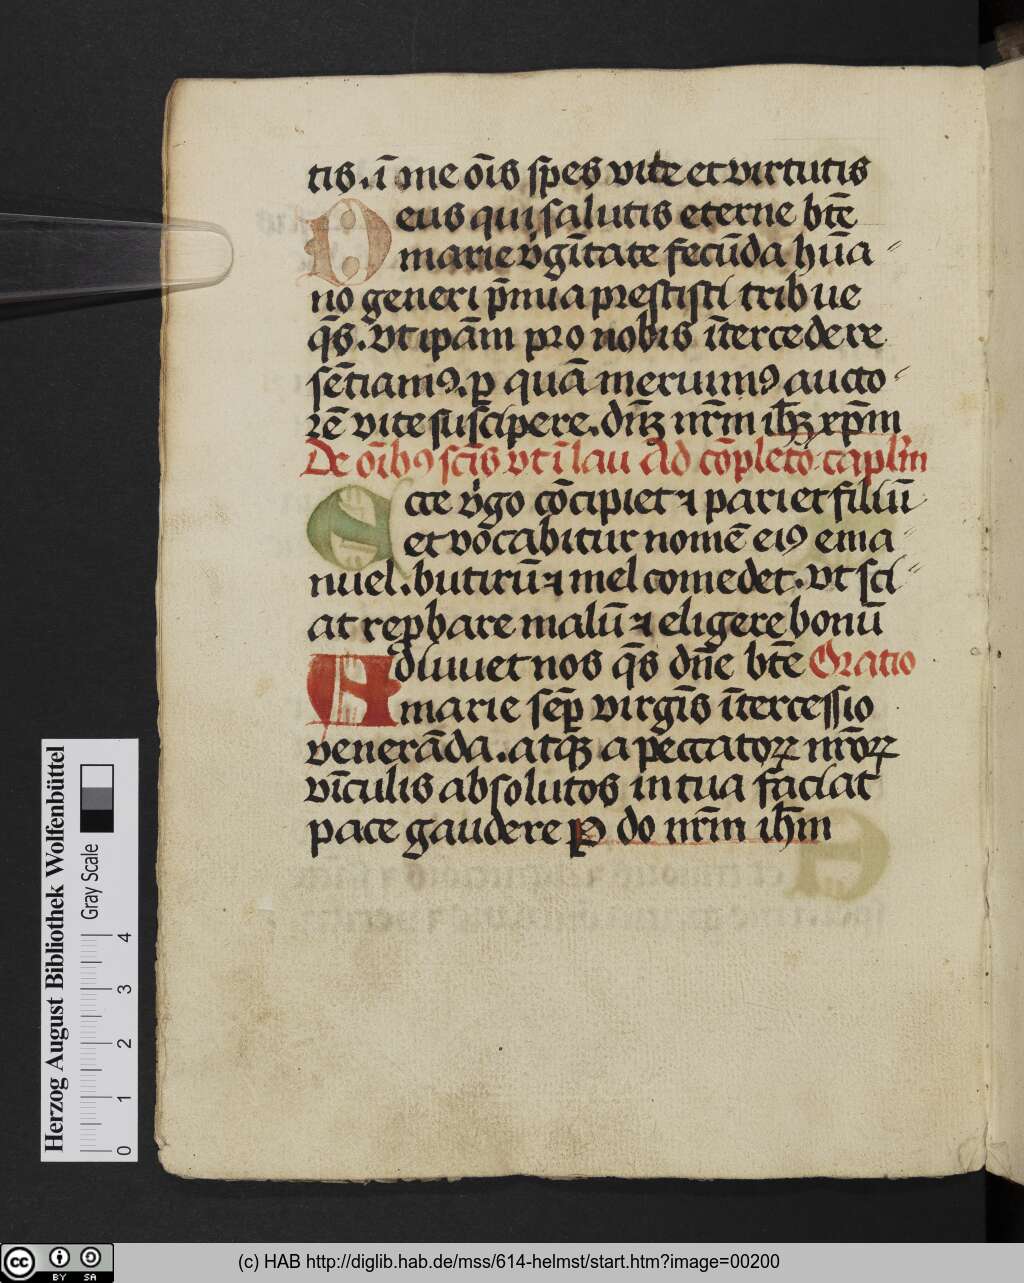 tis. ī me oīs sꝑes vite et virtutis
Deus qui salutis eterne btē
marie v̄gītate fecūda hūa-
no generi p̄mia prestitisti tribue
q̄s. vt ipam̄ pro nobis īntercedere
sētiamꝰ. ꝑ quā meruimꝰ aucto-
rē vite suscipere. dn̄ꝫ nr̄m ih̄ꝫ xp̄m
De oībꝰ sctīs vt ī lau Ad cōpletō capl̄m
Ecce v̄go cōcipiet ⁊ pariet filiū
et vocabitur nomē eiꝰ ema-
nuel. butirū ⁊ mel comedet. vt sci-
at rep̄bare malū ⁊ eligere bonū
Adiuuet nos q̄s dn̄e btē Oratio
marie semꝑ virgīs ītercessio
venerāda. atqꝫ a peccatoꝝ nr̄oꝝ
vīculis absolutos in tua faciat
pace gaudere P do nr̄m ih̄m
Herzog August Bibliothek Wolfenbüttel
Gray Scale
0 1 2 3 4
cc BY SA
(c) HAB http://diglib.hab.de/mss/614-helmst/start.htm?image=00200